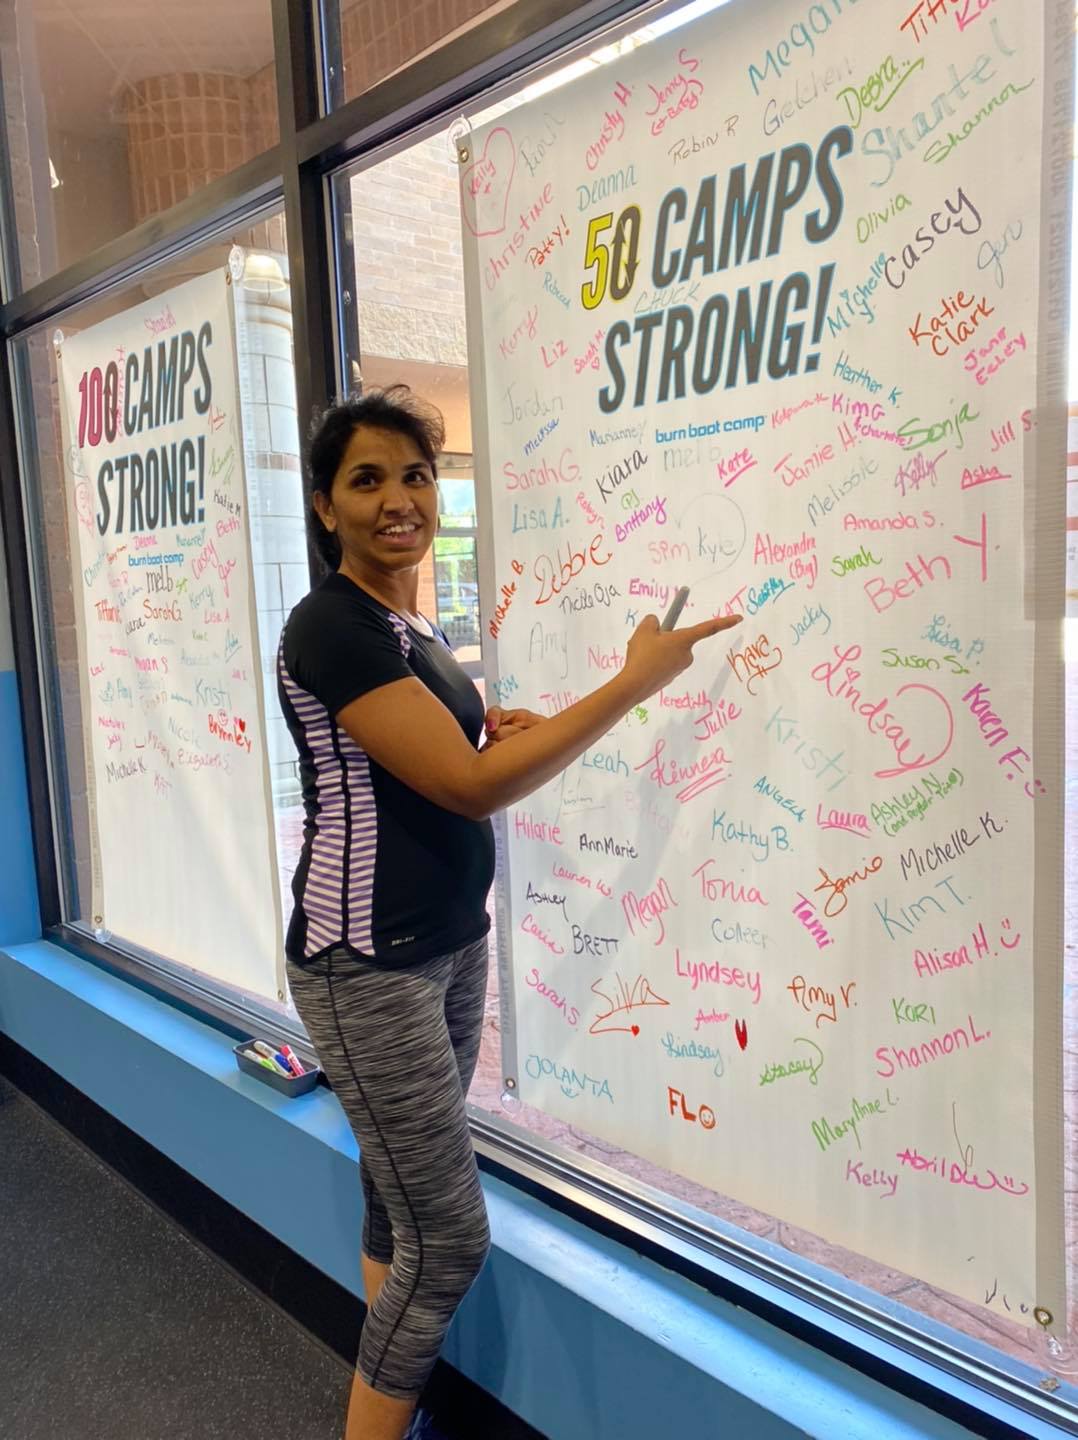 100 CAMPS
STRONG!
burn boot camp
melb
Deanna
Katie M
Beth
Casey
Kerry
SarahG
Tiffanie
Lisa A
Megan S
Amy
Kristi
Brinnley
Nicole
Natalie
Elizabeth S
Michelle K
KAT
Megan
Kelly
Christy H.
Jenny S.
Robin R
Gretchen
Debra...
Shantel
Shannon
Christine
Patty!
Deanna
50 CAMPS
STRONG!
CHUCK
burn boot camp
Olivia
Casey
Jen
Rebecca
Michelle
Katie
Clark
Kerry
Liz
Sarah M.
Heather K.
Jordan
Melissa
Marianne
Kim G
Sonja
Jill S.
SarahG.
Kiara
melb
Kate
Jamie H.
Melissa
Kelly
Asha
Lisa A.
Robyn
PJ
Brittany
Amanda S.
Debbie
5pm Kyle
Alexandra
(Bug)
Sarah
Beth Y
Michelle B.
Nicole Oja
Emily
KAT
Jacky
Lisa P.
Amy
Kara
Susan S.
Kim
Meredith
Julie
Lindsay
Karen F.
Leah
Kristi
Angela
Laura
Ashley N.
Hilarie
AnnMarie
Kathy B.
Jamie
Michelle K.
Lauren W.
Ashley
Megan
Tonia
Tami
Kim T.
Carin
BRETT
Colleen
Alison H.
Sarah S.
Silva
Lyndsey
Amy V.
KORI
Amber
Lindsay
Stacey
Shannon L.
JOLANTA
FLO
MaryAnne L.
Kelly
Abril D
DRI-FIT